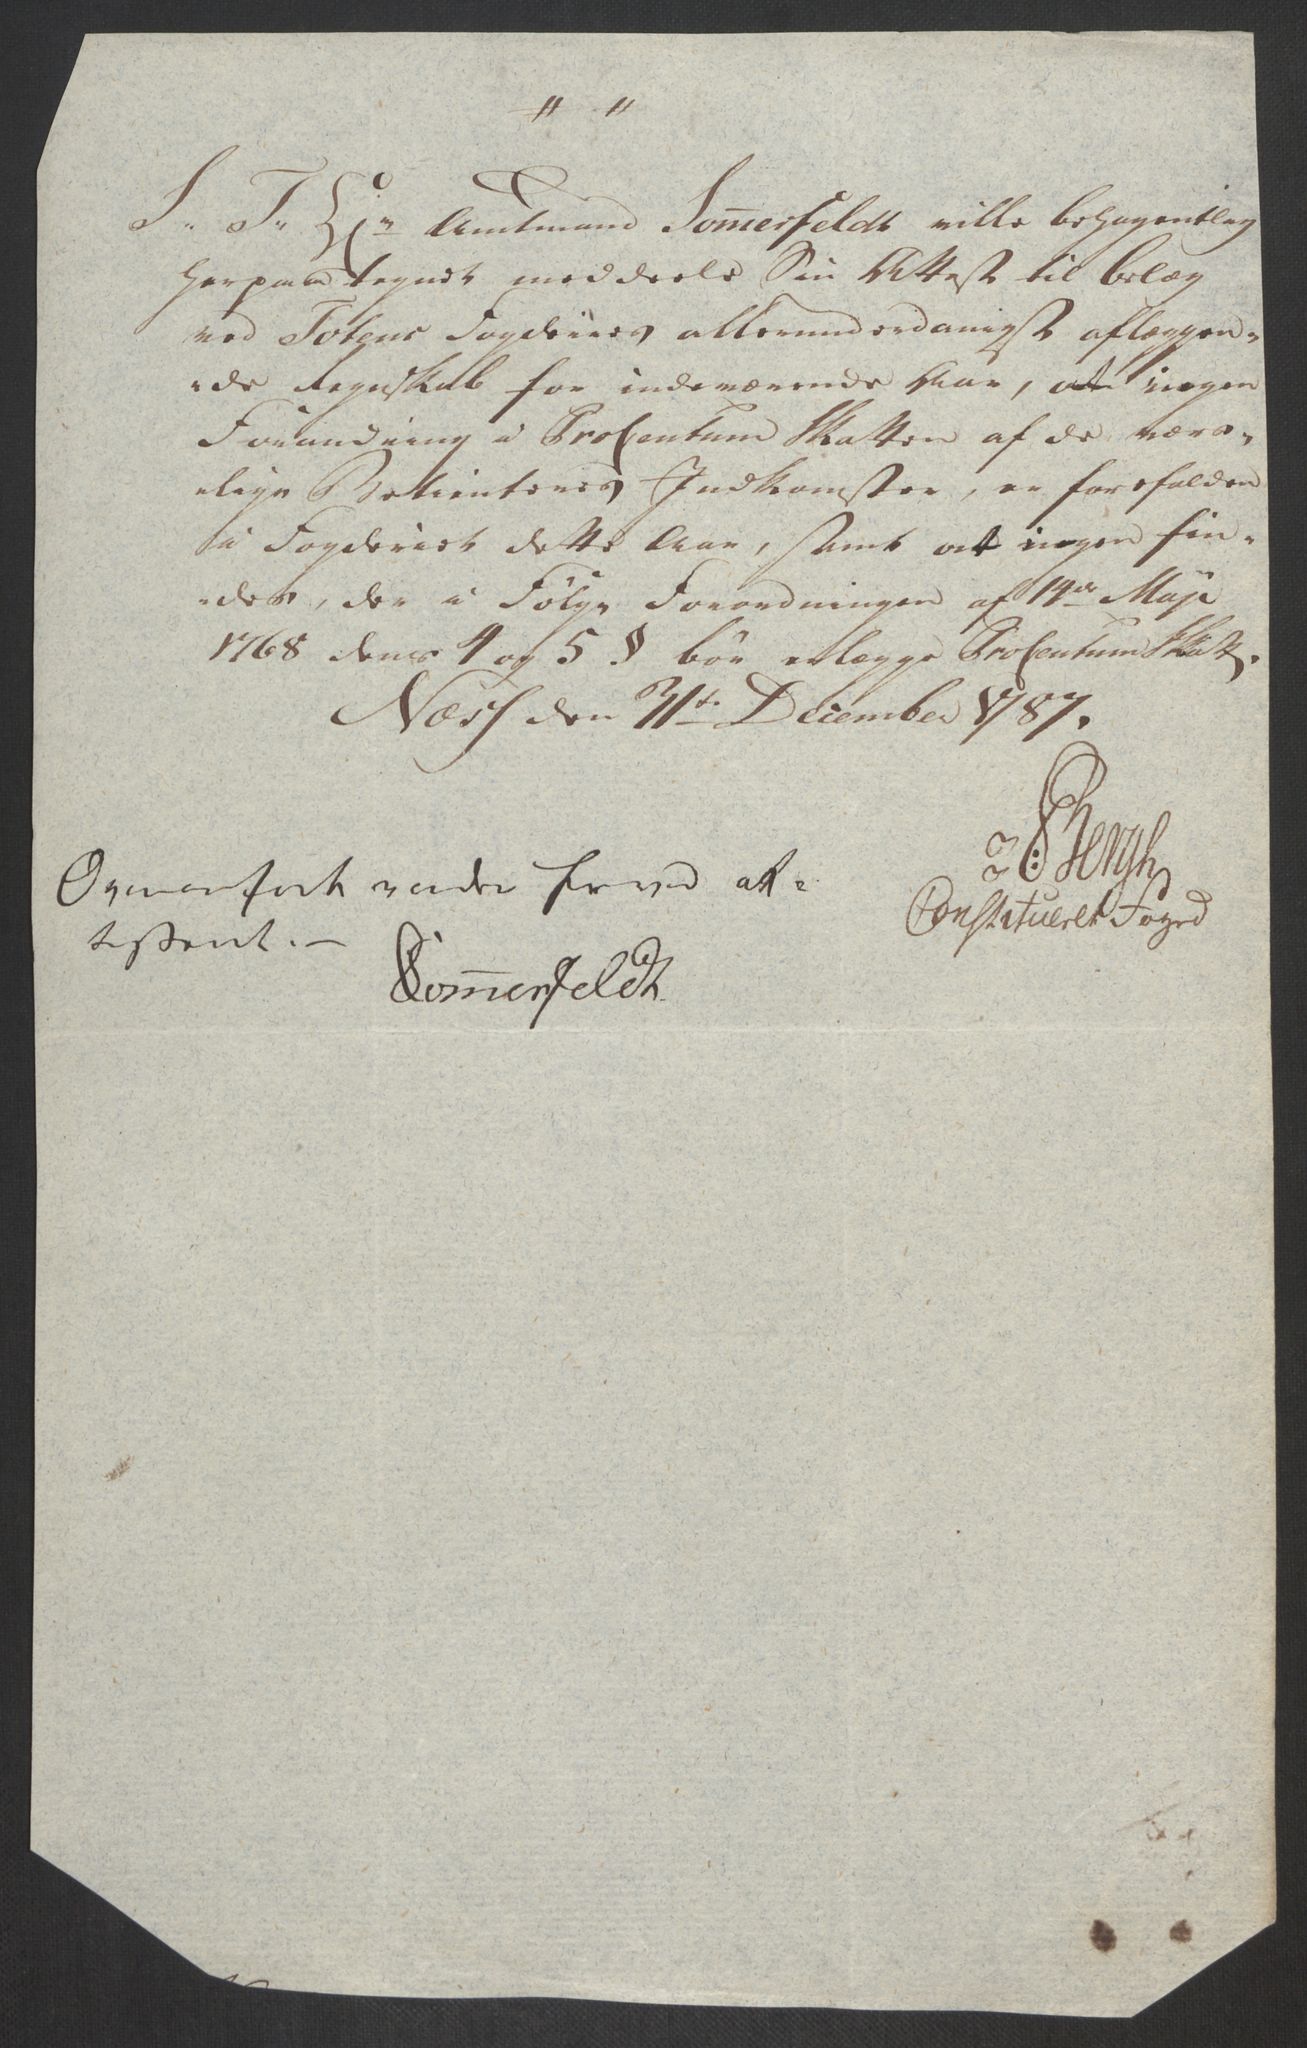 " "
S. T. Hr. Amtmand Sommerfeldt ville behageligen
herpaa tegnet meddeele Sin Attest til belæg
ved Totens Fogderies allerunderdanigst aflæggen-
-de Regnskab for indeværende Aar, at ingen
Forandring i ProCentum Skatten af de verds-
-lige Betienteres Indkomster, er forefalden
i Fogderiet dette Aar, samt at ingen fin-
-des, der i Følge Forordningen af 14de Maji
1768 dens 4 og 5 § bör erlægge ProCentum Skatt.
Næss den 31te December 1787.
Bergh
Constitueret Foged
Ovenanførte vorder herved at-
testeret.-
Sommerfeldt